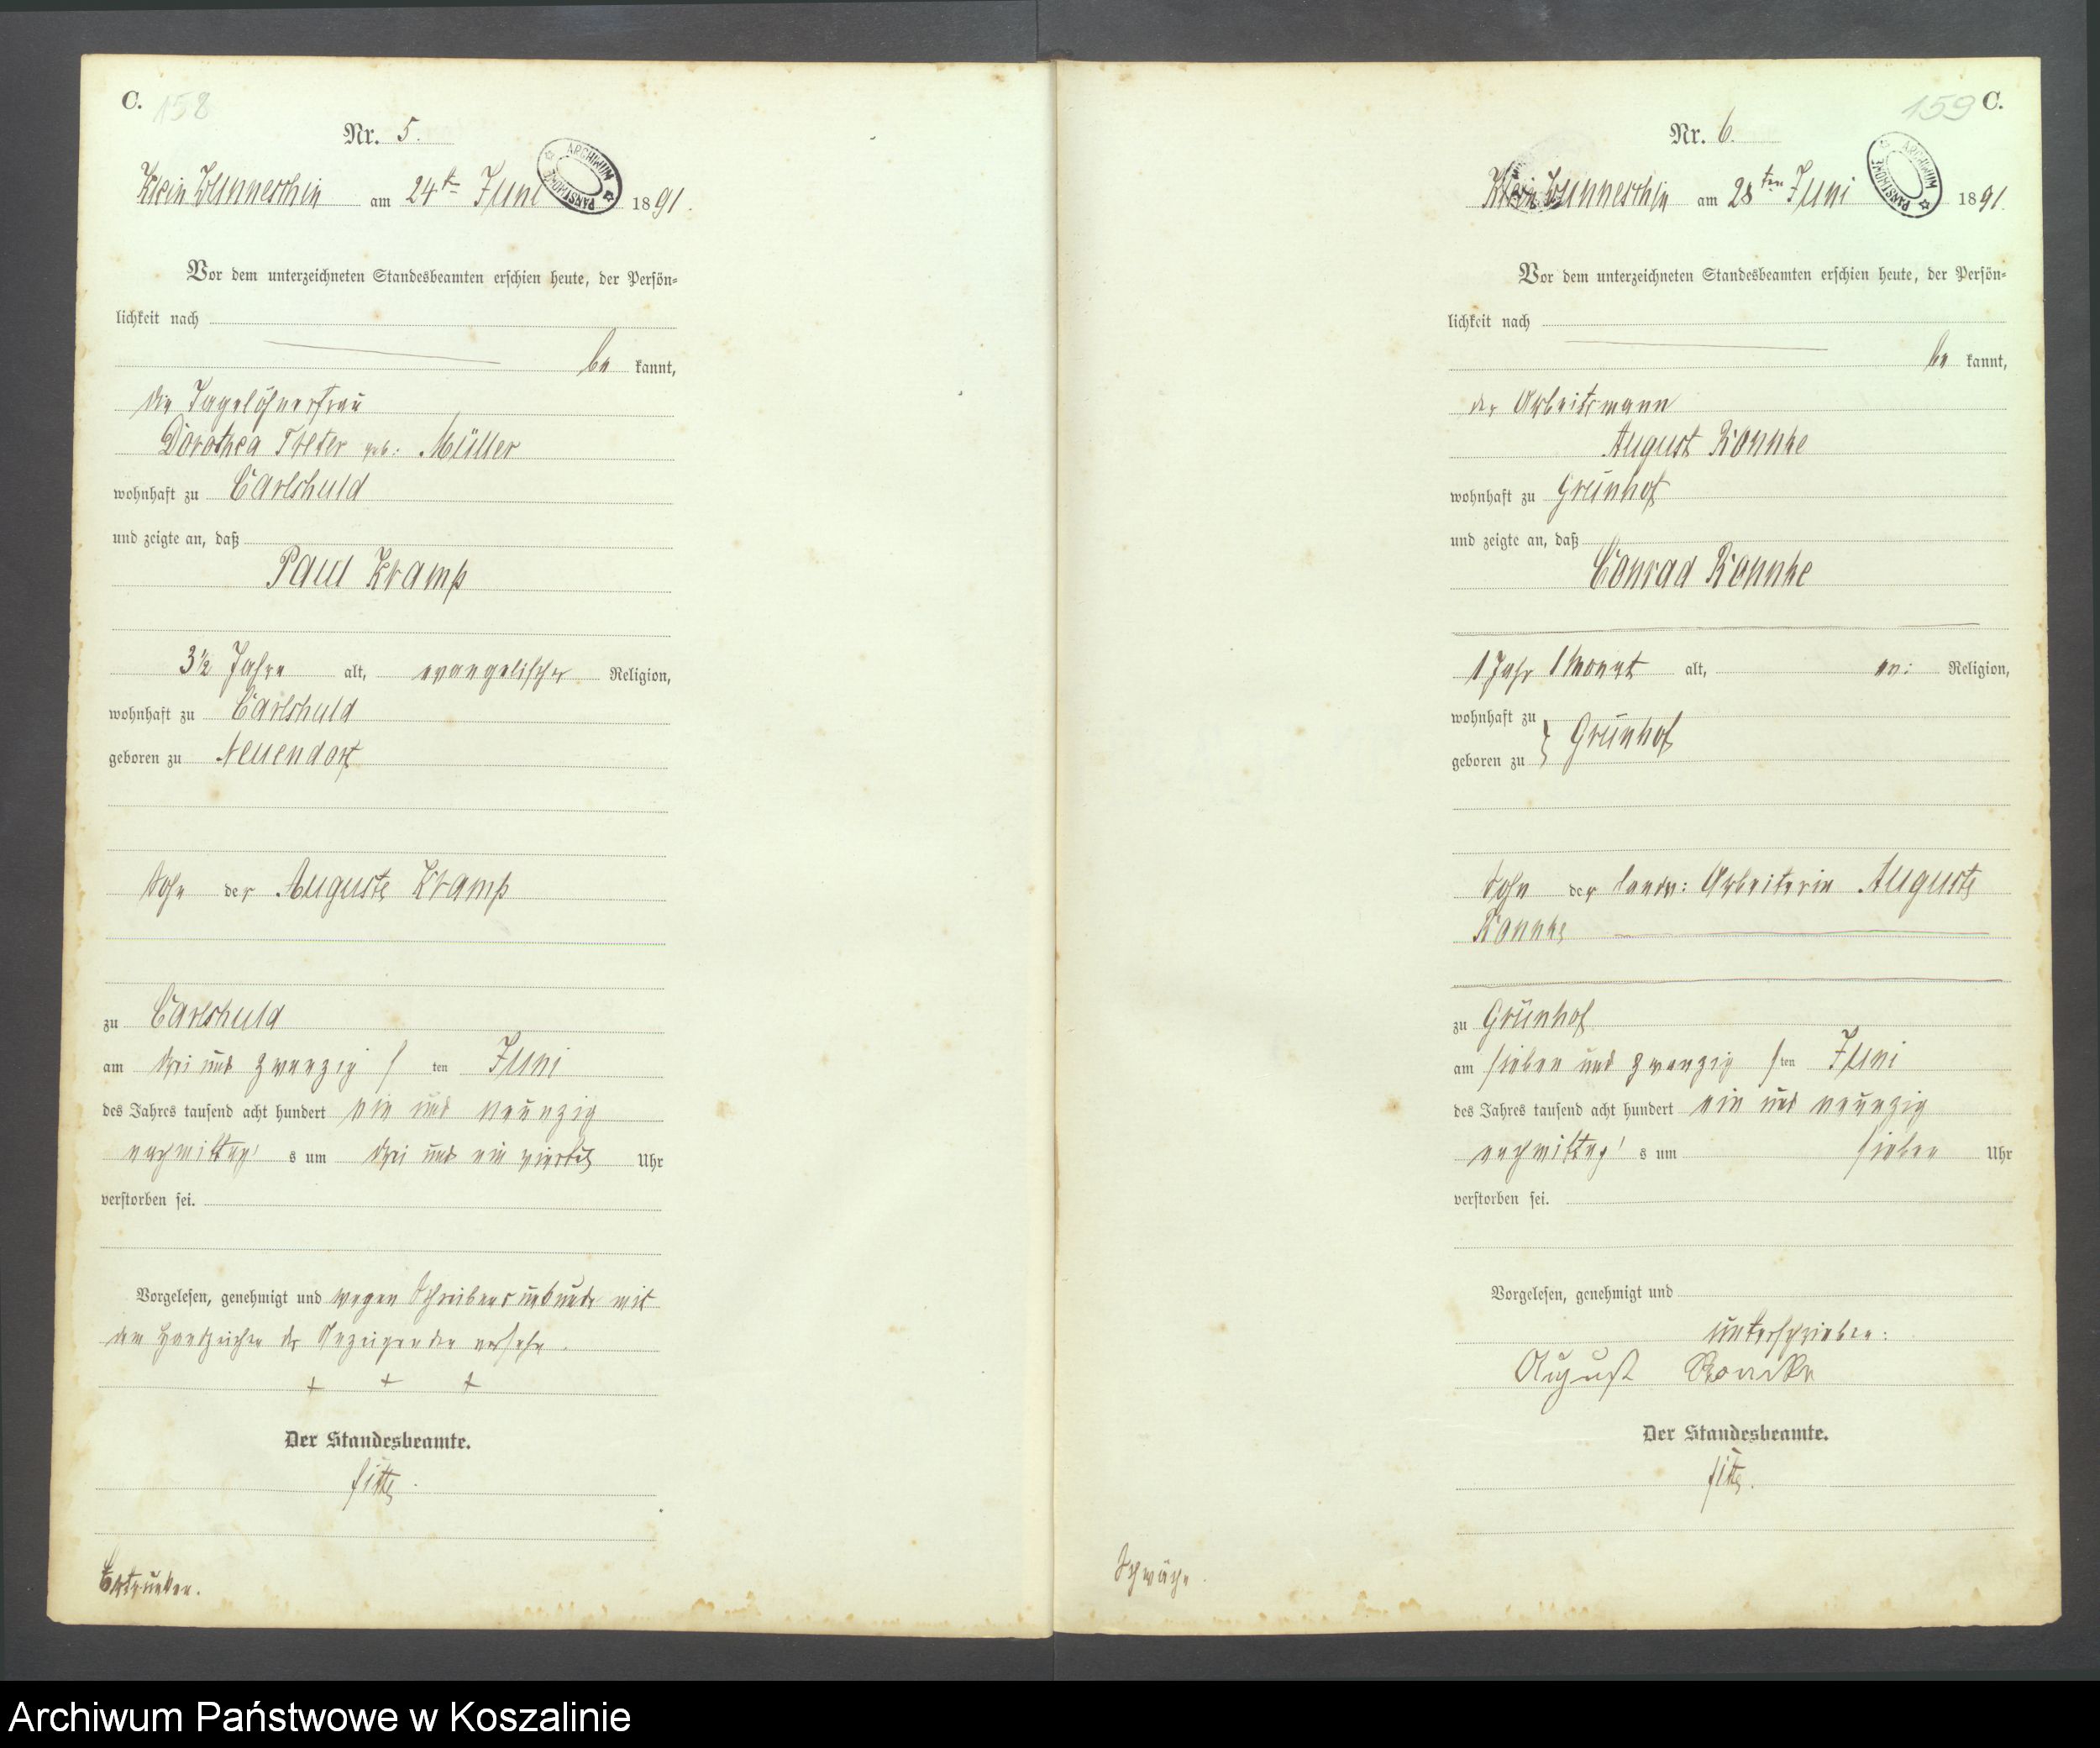 C. 158
Nr. 5.
Klein Wunneschin am 24t Juni 1891.
ARCHIWUM PAŃSTWOWE
Vor dem unterzeichneten Standesbeamten erschien heute, der Persön-
lichkeit nach
be kannt,
die Tagelöhnerfrau
Dorothea geb: Müller
wohnhaft zu Carlshuld
und zeigte an, daß
Paul Kramp
3½ Jahre alt, evangelischer Religion,
wohnhaft zu Carlshuld
geboren zu Neuendorf
Sohn der Auguste Kramp
zu Carlshuld
am drei und zwanzig sten Juni
des Jahres tausend acht hundert ein und neunzig
nachmittag s um drei und ein viertel Uhr
verstorben sei.
Vorgelesen, genehmigt und wegen Schreibensunkunde mit
dem Handzeichen der Anzeigenden versehen.
+ + +
Der Standesbeamte.
Ertrunken.
159 C.
Nr. 6.
Klein Wunneschin am 28ten Juni 1891.
ARCHIWUM PAŃSTWOWE
Vor dem unterzeichneten Standesbeamten erschien heute, der Persön-
lichkeit nach
be kannt,
der Arbeitsmann
August Konnke
wohnhaft zu Grünhof
und zeigte an, daß
Conrad Konnke
1 Jahr 1 Monat alt, ev: Religion,
wohnhaft zu
geboren zu } Grünhof
Sohn der landw: Arbeiterin Auguste
Konnke
zu Grünhof
am sieben und zwanzig sten Juni
des Jahres tausend acht hundert ein und neunzig
nachmittag s um sieben Uhr
verstorben sei.
Vorgelesen, genehmigt und
unterschrieben:
August Konnke
Der Standesbeamte.
Schwäche.
Archiwum Państwowe w Koszalinie